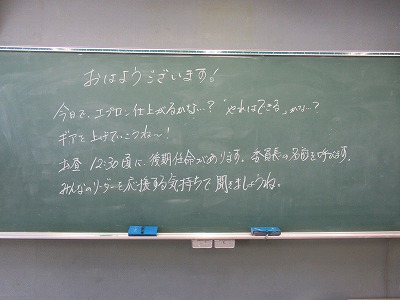 おはようございます!
今日で、エプロン仕上がるかな…?「やればできる」かな…?
ギアを上げていこうね〜!
お昼 12:30頃に、後期任命があります。委員長の名前を呼びます。
みんなのリーダーを応援する気持ちで聞きましょうね。